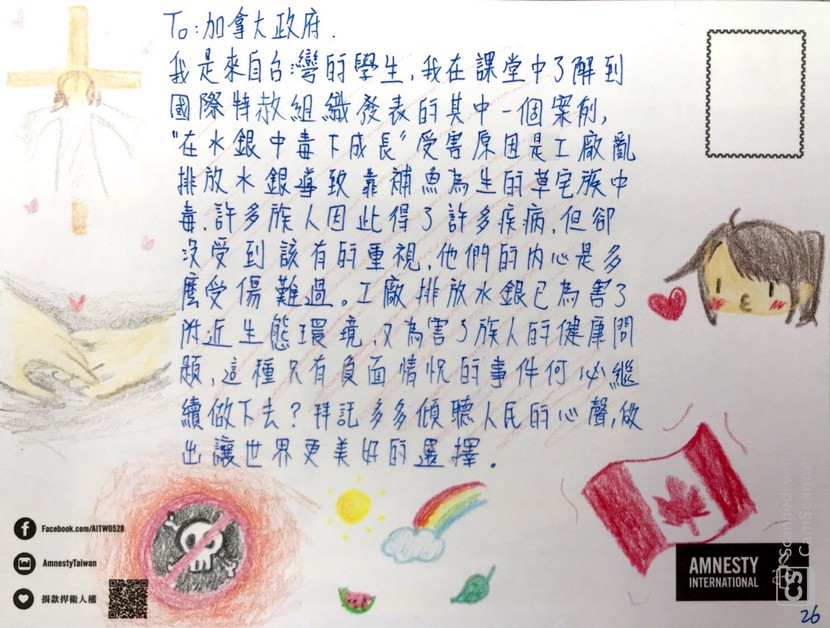 To:加拿大政府.
我是來自台灣的學生,我在課堂中了解到
國際特赦組織發表的其中一個案例,
"在水銀中毒下成長"受害原因是工廠亂
排放水銀導致靠補魚為生的草宅族中
毒.許多族人因此得了許多疾病,但卻
沒受到該有的重視,他們的内心是多
麼受傷難過。工廠排放水銀已為害了
附近生態環境,又為害了族人的健康問
題,這種只有負面情況的事件何必繼
續做下去?拜託多多傾聽人民的心聲,做
出讓世界更美好的選擇。
Facebook.com/AITW0528
AmnestyTaiwan
捐款捍衛人權
AMNESTY
INTERNATIONAL
CS Scanned with
CamScanner
26